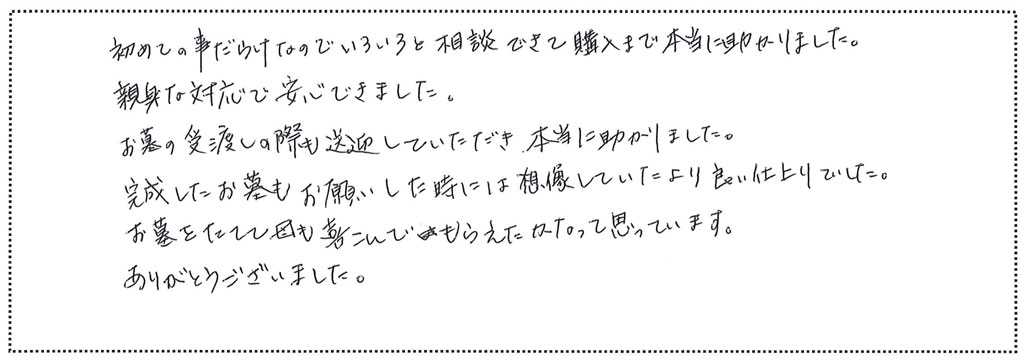 初めての事だらけなのでいろいろと相談できて購入まで本当に助かりました。
親身な対応で安心できました。
お墓の受渡しの際も送迎していただき、本当に助かりました。
完成したお墓もお願いした時には想像していたより良い仕上りでした。
お墓をたてて母も喜こんでもらえたかなって思っています。
ありがとうございました。